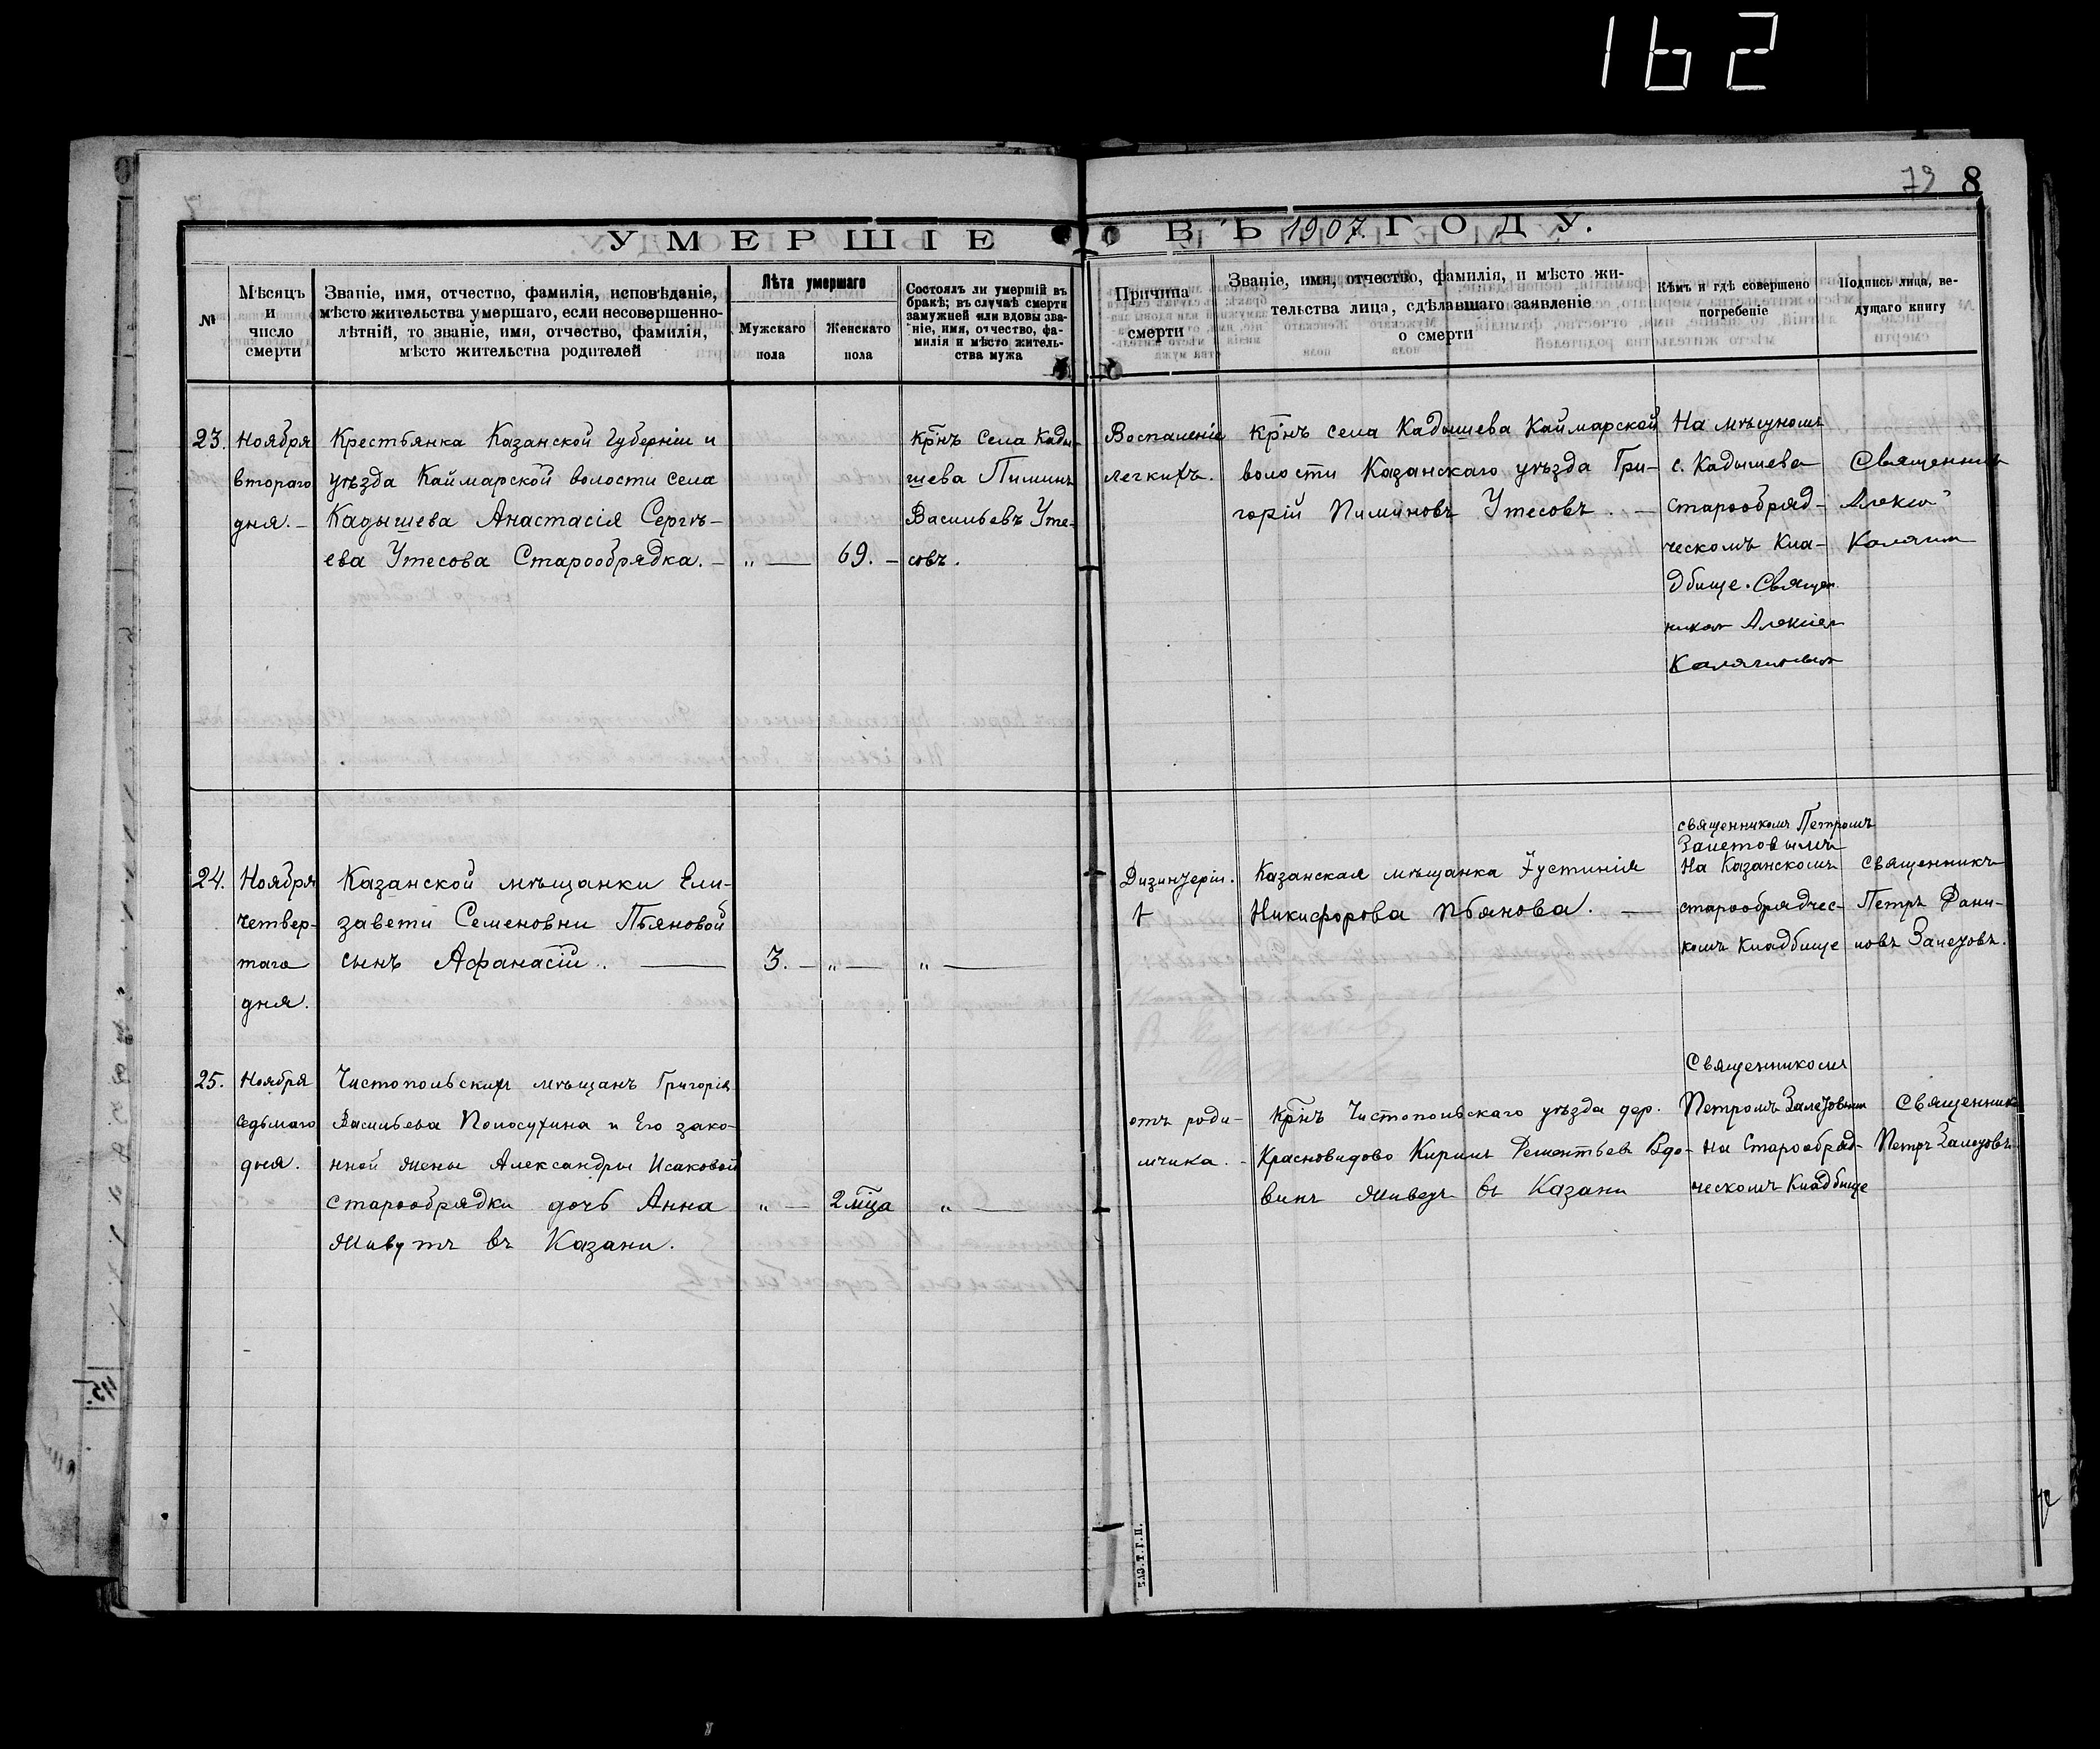 162
79 8
УМЕРШІЕ ВЪ 1907. ГОДУ.
№
Мѣсяцъ
и
число
смерти
Званіе, имя, отчество, фамилія, исповѣданіе,
мѣсто жительства умершаго, если несовершенно-
лѣтній, то званіе, имя, отчество, фамилія,
мѣсто жительства родителей
Лѣта умершаго
Мужскаго
пола
Женскато
пола
Состоялъ ли умершій въ
бракѣ; въ случаѣ смерти
замужней или вдовы зва-
ніе, имя, отчество, фа-
милія и мѣсто житель-
ства мужа
Причина
смерти
Званіе, имя, отчество, фамилія, и мѣсто жи-
тельства лица, сдѣлавшаго заявленіе
о смерти
Кѣмъ и гдѣ совершено
погребеніе
Подпись лица, ве-
дущаго книгу
23.
Ноября
втораго
дня.-
Крестьянка Казанской губерніи и
уѣзда Каймарской волости села
Кадышева Анастасія Сергѣ-
ева Утесова Старообрядка.-
„ —
69. -
крнъ села Кады-
шева Пиминъ
Васильевъ Уте-
совъ.
Воспаленіе
легкихъ.
крнъ села Кадышева Каймарской
волости Казанскаго уѣзда Гри-
горій Пиминовъ Утесовъ. —
На мѣстномъ
с. Кадышева
старообряд-
ческомъ кла-
дбище. Священ
ником Алексіем
Калягинымъ
Священникъ
Алексій
Калягин
24.
Ноября
четвер-
таго
дня.
Казанской мѣщанки Ели-
завети Семеновни Пьяновой
сынъ Афанасій. —
3. —
„ —
„ —
Дизинтерія.
Казанская мѣщанка Ѵустинія
Никифорова Пьянова. —
священникомъ Петромъ
Залетовымъ
На Казанскомъ
старообрядчес-
комъ кладбище
Священникъ
Петръ Дани-
ловъ Залетовъ.
25.
Ноября
седьмаго
дня.
Чистопольскихъ мѣщанъ Григорія
Васильева Полосухина и Его зако-
нной жены Александры Исаковой
старообрядки дочь Анна
живутъ въ Казани.
„ —
2 мца
„ —
отъ роди-
мчика. -
Крнъ Чистопольскаго уѣзда дер.
Красновидово Кирилъ Дементьевъ Вдо-
винъ живетъ въ Казани
Священникомъ
Петромъ Залетовым
на Старообряд-
ческомъ Кладбище
Священникъ
Петръ Залетовъ.
КАЗ. Т. Г. П.